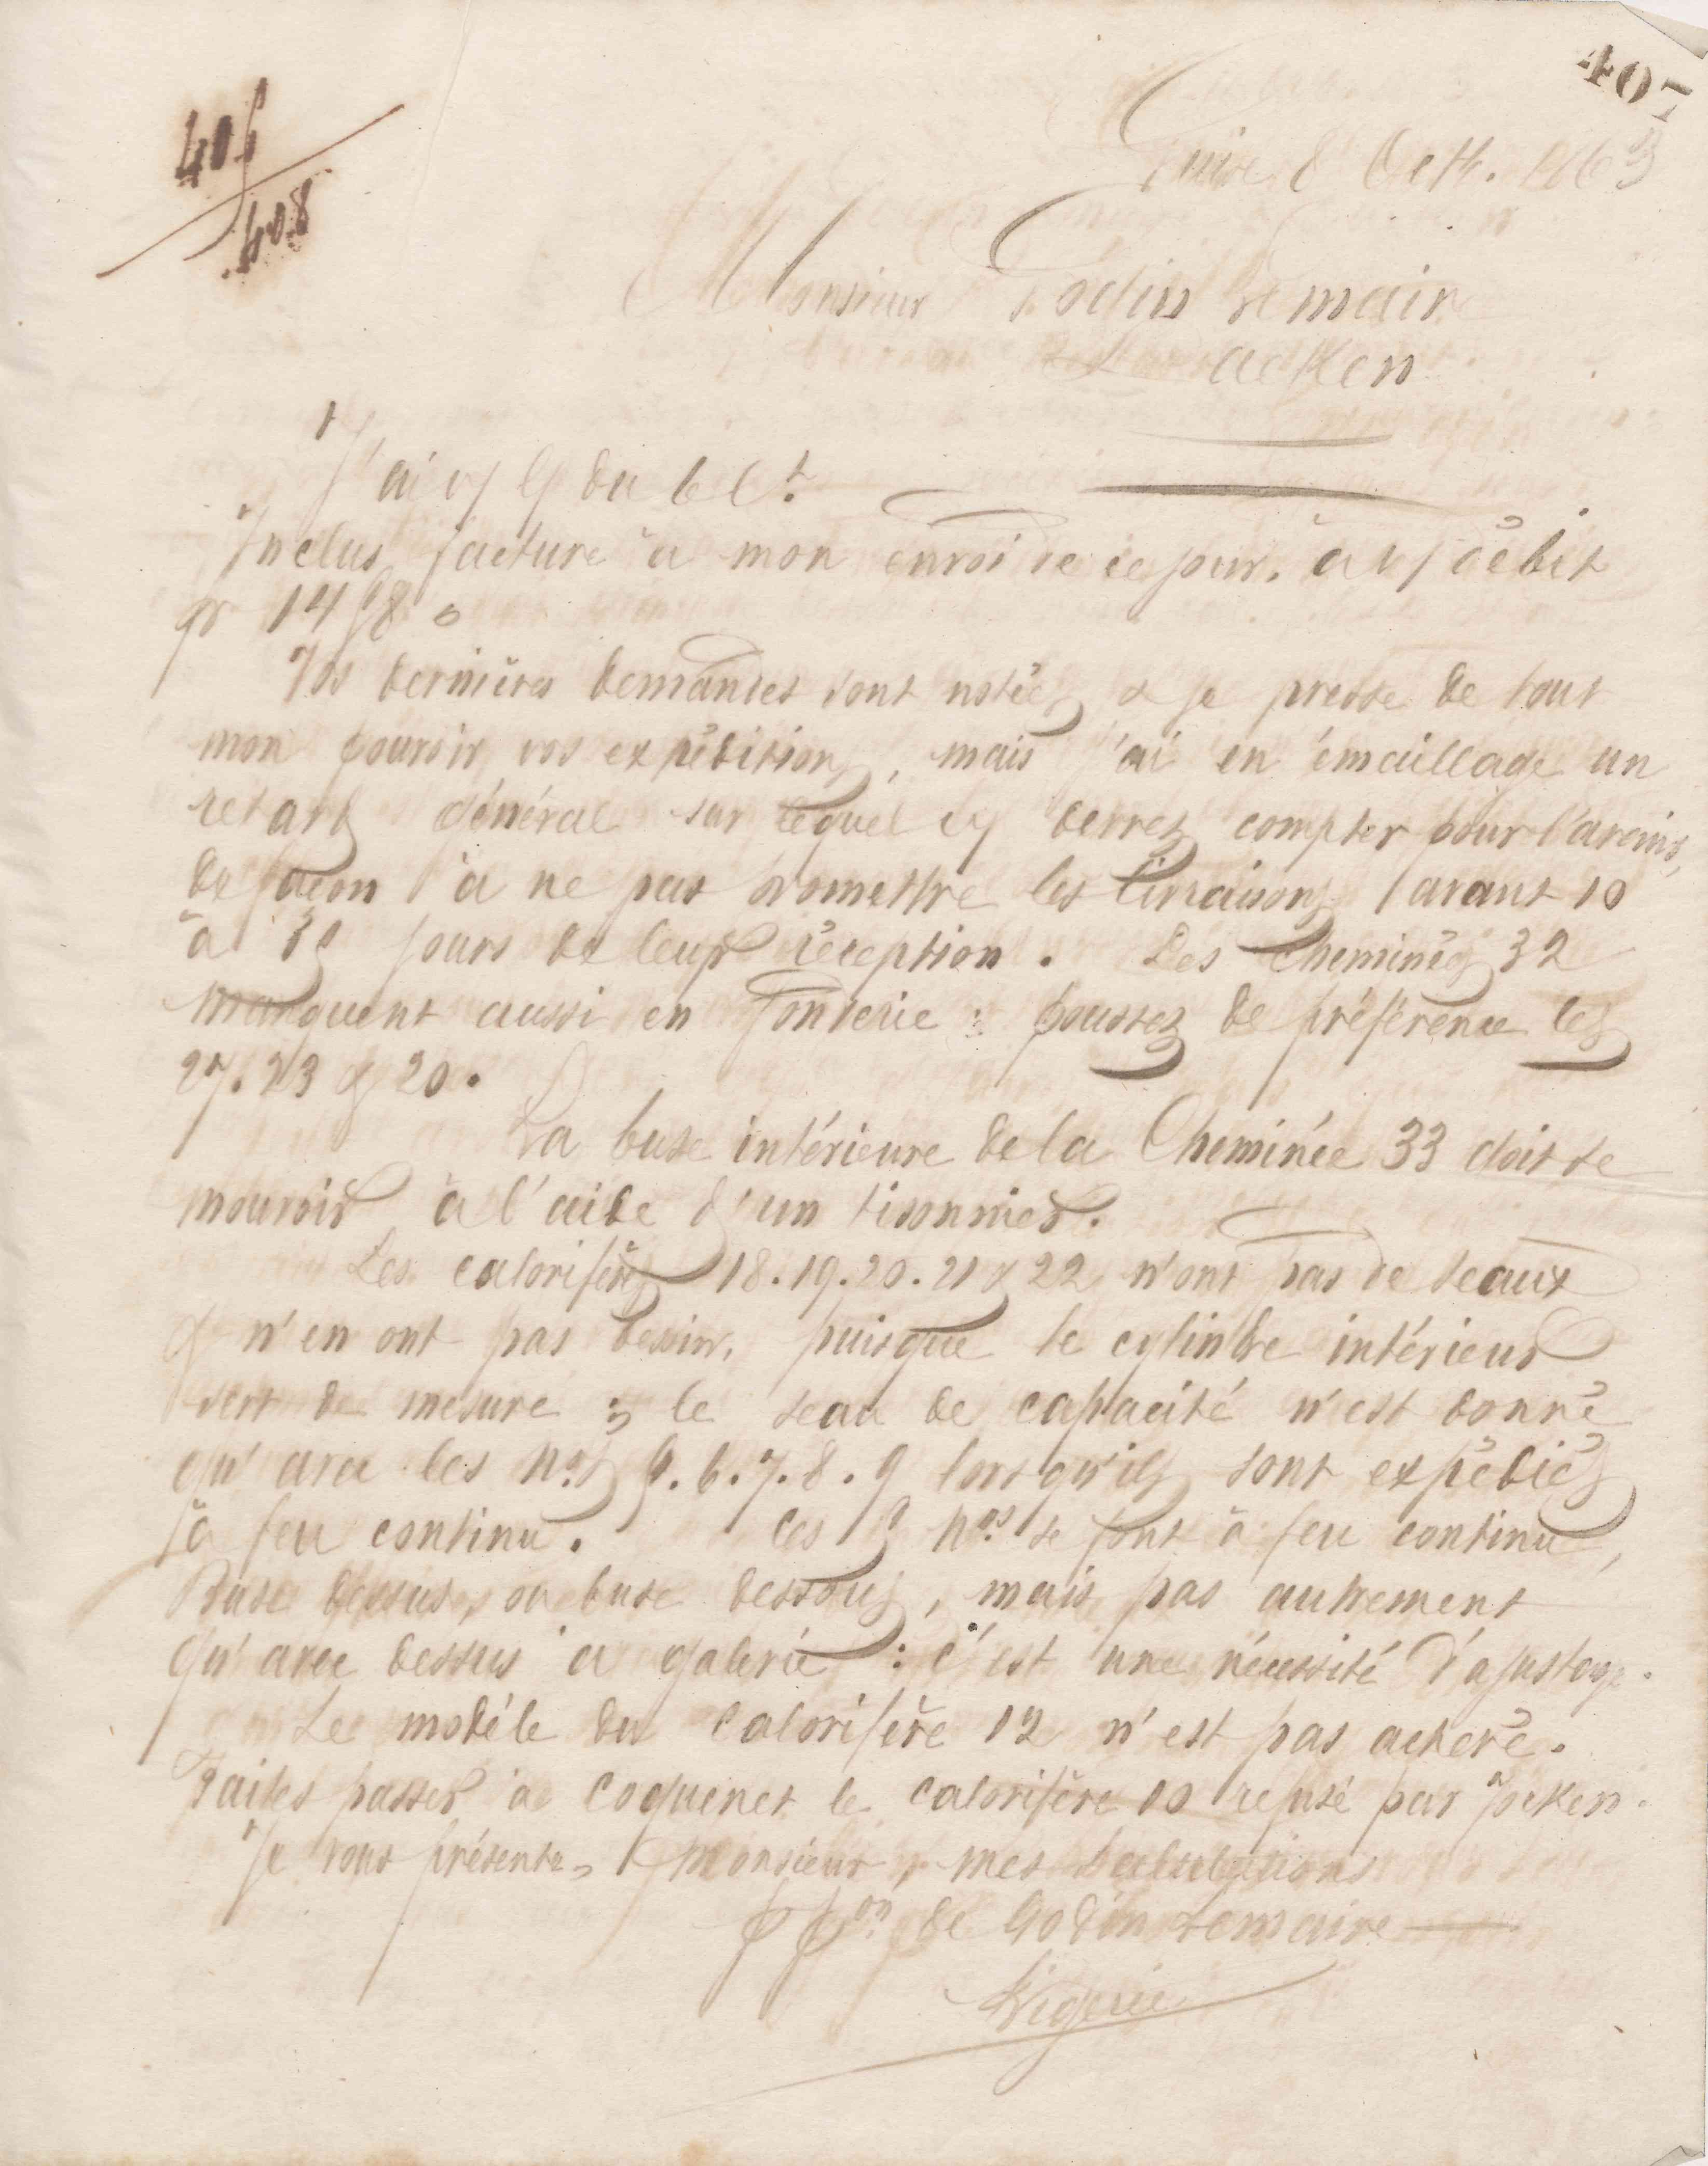 407
405
408
Guise 8 Oct. 1863
Monsieur Godin Lemaire
Laeken
J'ai v/ l/ du 6 ct.
Inclus facture à mon envoi de ce jour. à v/ débit
fr
Vos dernières demandes sont notées & je presse de tout
mon pouvoir vos expéditions, mais j'ai en émaillage un
retard général sur lequel v/ devrez compter pour l'avenir,
de façon à ne pas promettre les livraisons avant 10
à jours de leur réception. Les Cheminées 32
manquent aussi en fonderie : poussez de préférence les
27. 23 & 20.
La buse intérieure de la Cheminée 33 doit se
mouvoir à l'aide d'un tisonnier.
Les calorifères 18. 19. 20. 21 & 22 n'ont pas de seaux
& n'en ont pas besoin, puisque le cylindre intérieur
sert de mesure ; le seau de capacité n'est donné
qu'avec les Nos 5. 6. 7. 8. 9 lorsqu'ils sont expédiés
à feu continu. Ces 5 Nos se font à feu continu,
Buse dessus, ou buse dessous, mais pas autrement
qu'avec dessus à galerie : c'est une nécessité d'ajustage.
Le modèle du Calorifère 12 n'est pas achevé.
Faites passer à Coquenet le calorifère 10 refusé par
Je vous présente, Monsieur, mes salutations
p pon de Godin Lemaire